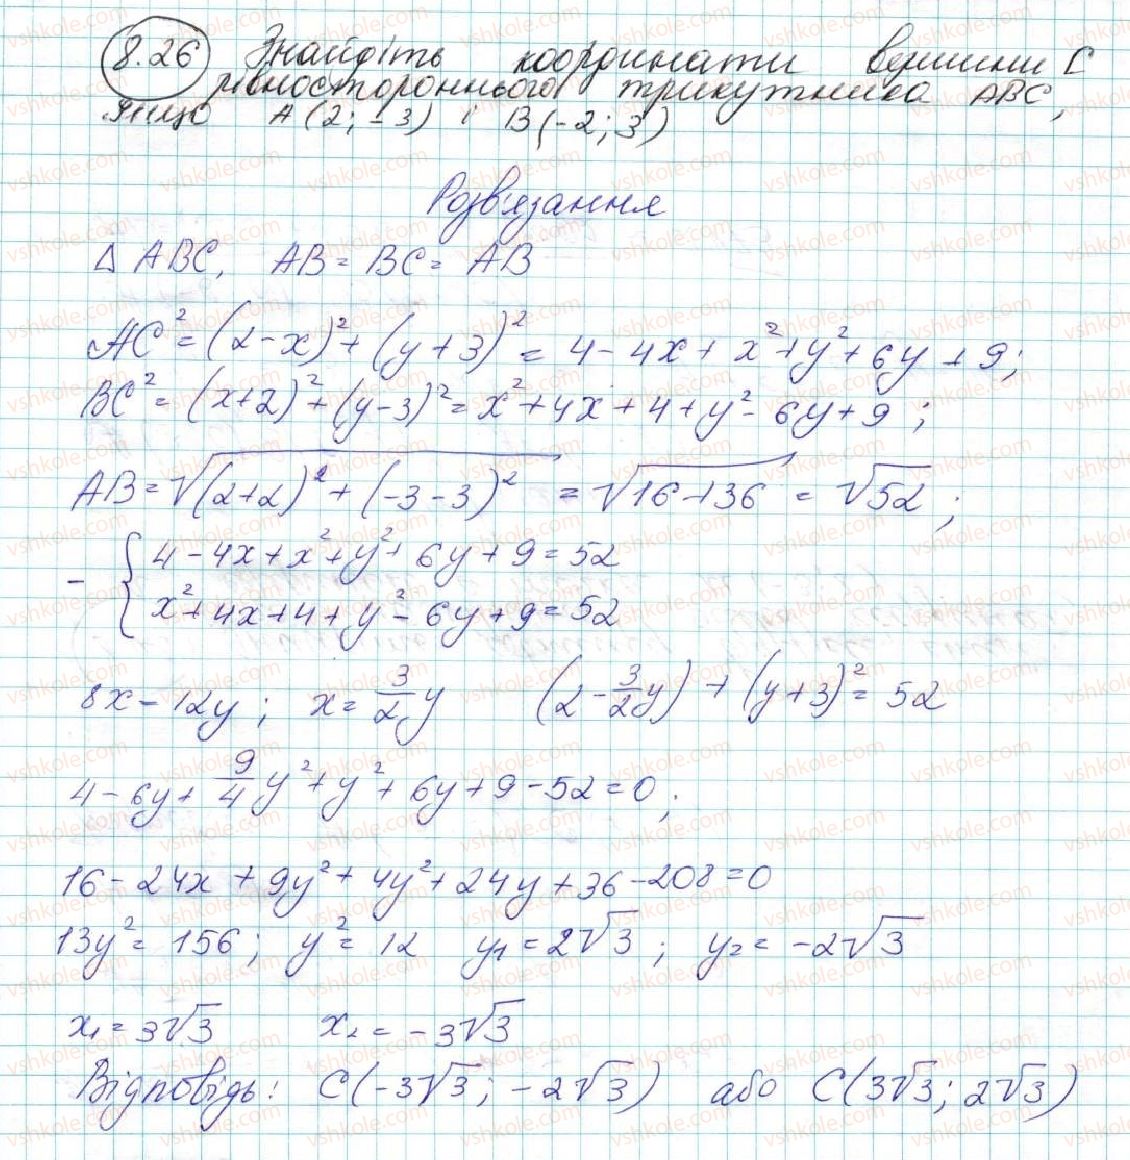 8.26 Знайдіть координати вершини C
рівностороннього трикутника ABC,
якщо A(2; -3) і B(-2; 3)
Розв'язання
Δ ABC, AB = BC = AB
AC² = (2-x)² + (y+3)² = 4 - 4x + x² + y² + 6y + 9;
BC² = (x+2)² + (y-3)² = x² + 4x + 4 + y² - 6y + 9;
AB = √((2+2)² + (-3-3)²) = √(16+36) = √52;
- { 4 - 4x + x² + y² + 6y + 9 = 52
x² + 4x + 4 + y² - 6y + 9 = 52
8x - 12y; x = 3/2 y (2 - 3/2 y) + (y+3)² = 52
4 - 6y + 9/4 y² + y² + 6y + 9 - 52 = 0;
16 - 24x + 9y² + 4y² + 24y + 36 - 208 = 0
13y² = 156; y² = 12 y₁ = 2√3; y₂ = -2√3
x₁ = 3√3 x₂ = -3√3
Відповідь: C(-3√3; -2√3) або C(3√3; 2√3)